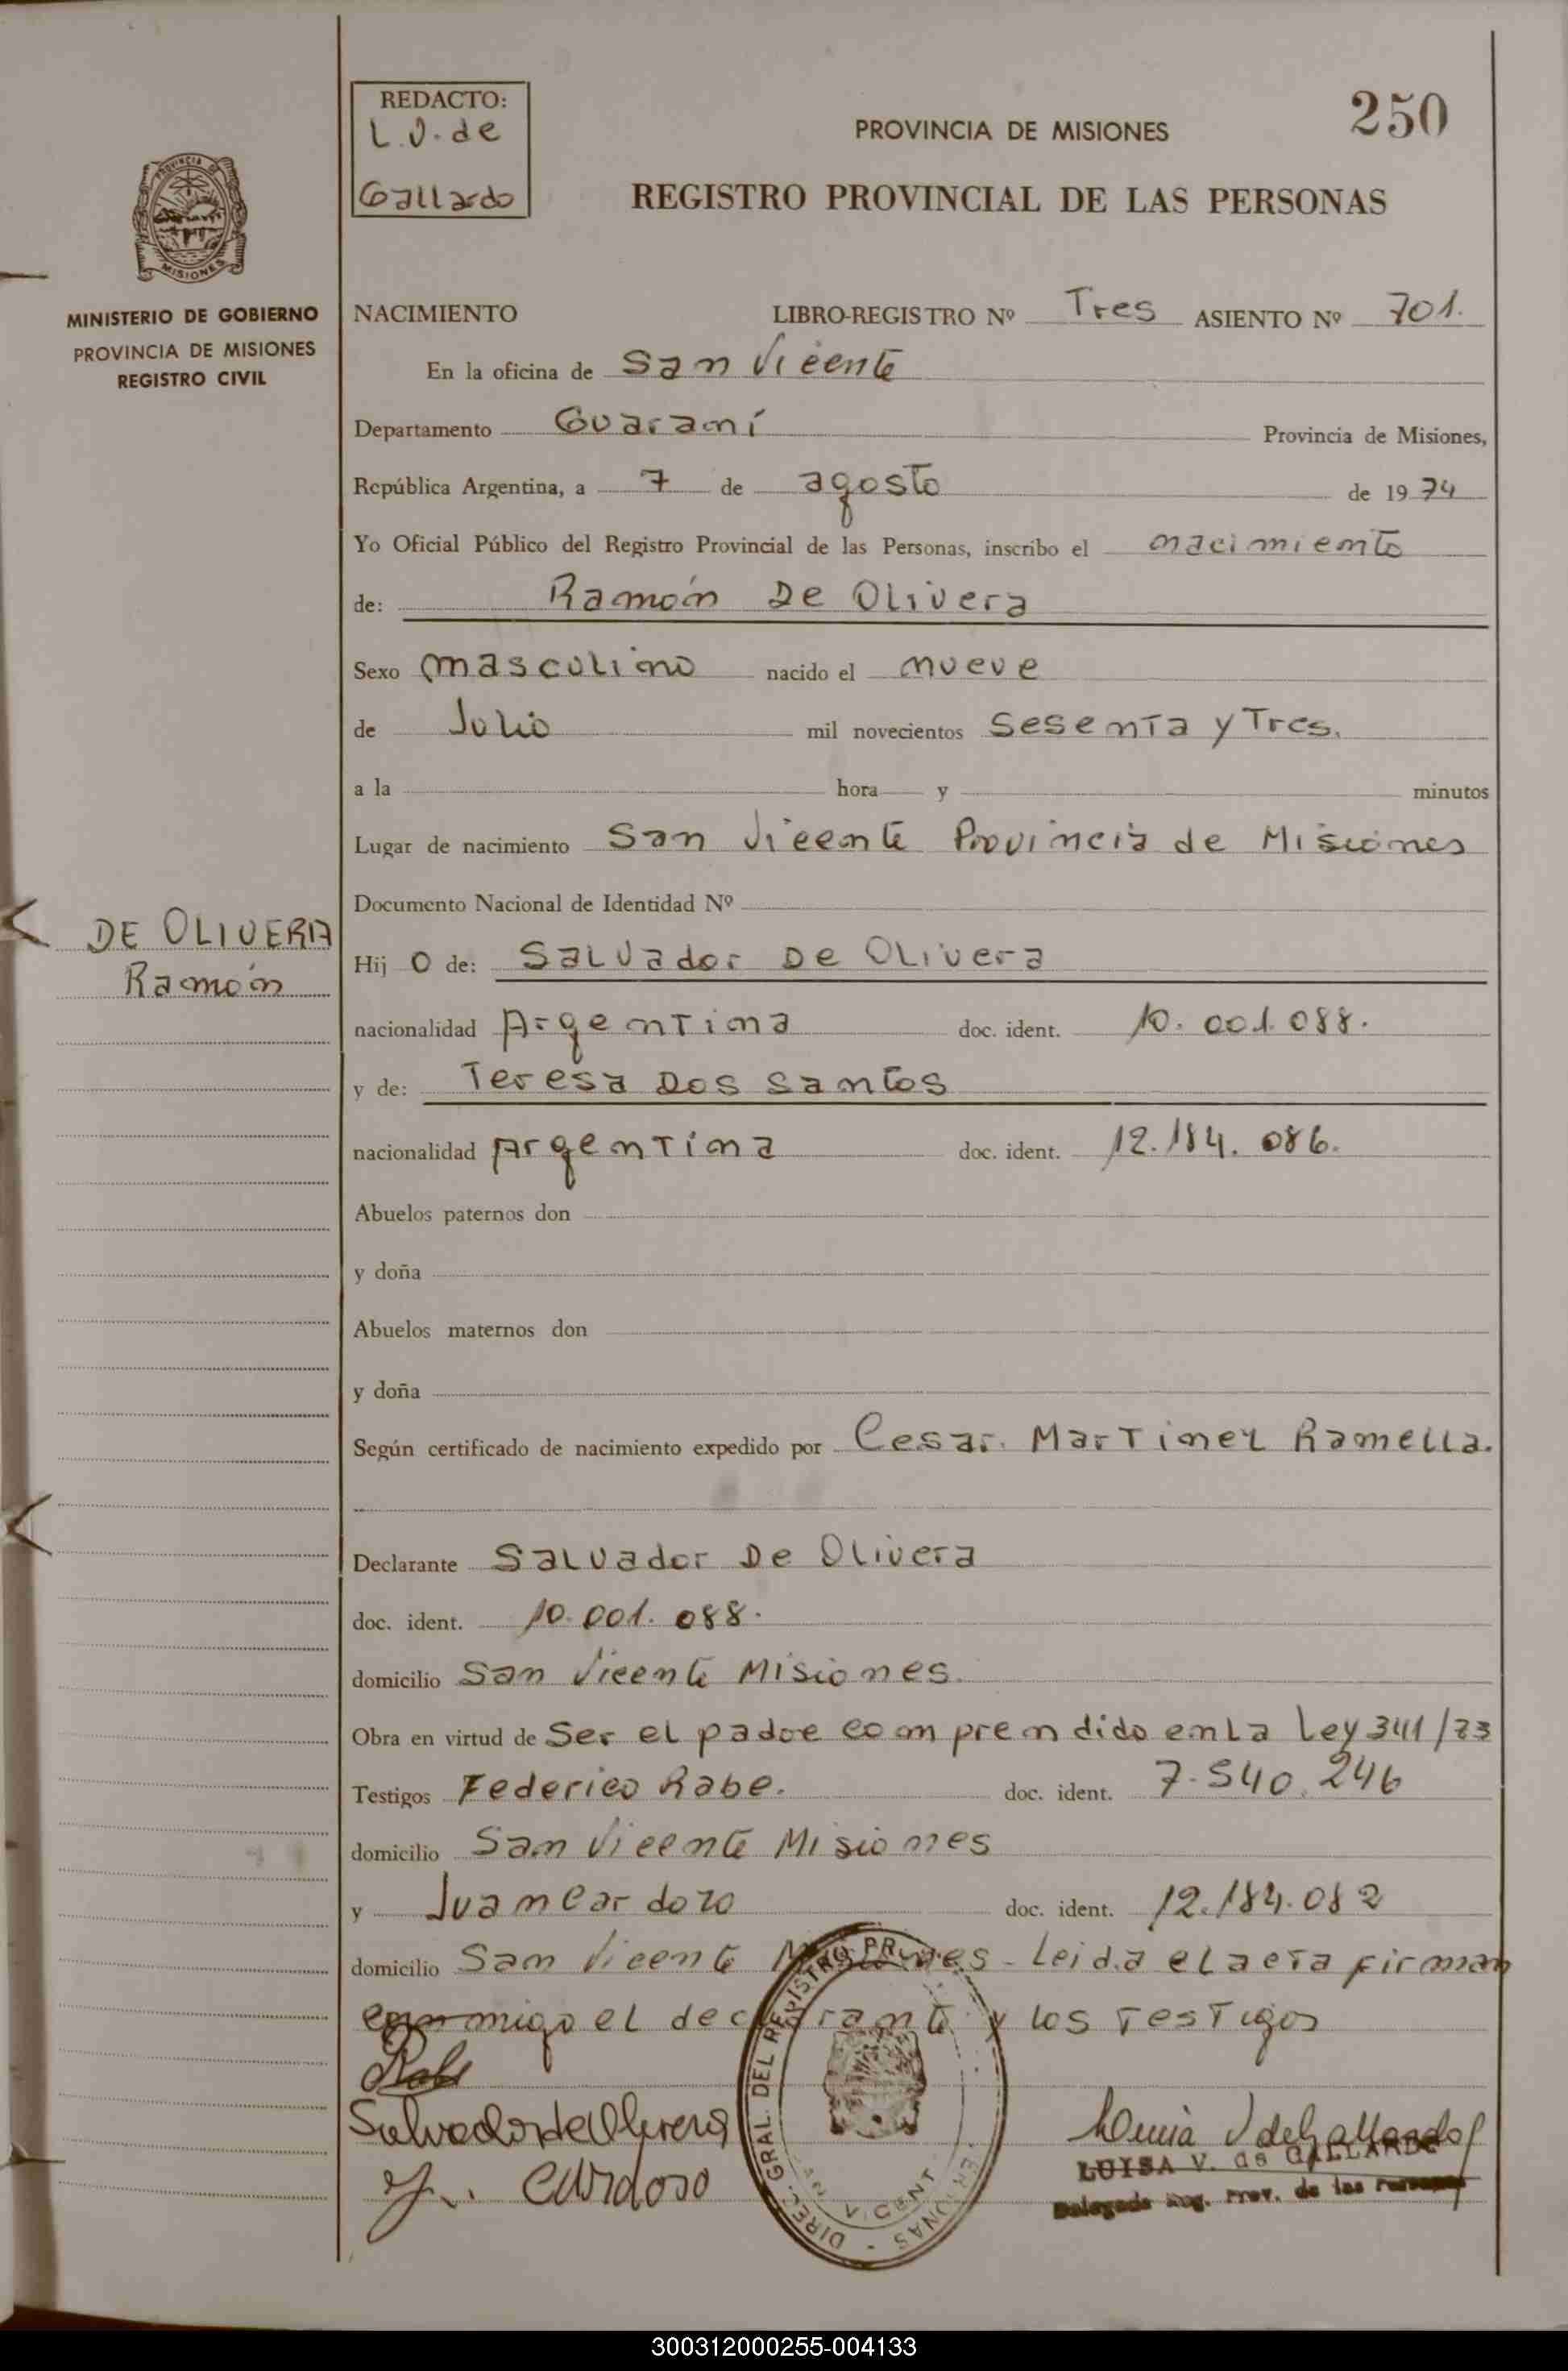 REDACTO:
L.V. de
Gallardo
PROVINCIA DE MISIONES
250
REGISTRO PROVINCIAL DE LAS PERSONAS
PROVINCIA DE
MISIONES
MINISTERIO DE GOBIERNO
PROVINCIA DE MISIONES
REGISTRO CIVIL
NACIMIENTO LIBRO-REGISTRO Nº Tres ASIENTO Nº 701.
En la oficina de San Vicente
Departamento Guaraní Provincia de Misiones,
República Argentina, a 7 de agosto de 1974
Yo Oficial Público del Registro Provincial de las Personas, inscribo el nacimiento
de: Ramón De Olivera
Sexo masculino nacido el nueve
de Julio mil novecientos Sesenta y Tres.
a la hora y minutos
Lugar de nacimiento San Vicente Provincia de Misiones
Documento Nacional de Identidad Nº
DE OLIVERA
Ramón
Hij O de: Salvador De Olivera
nacionalidad Argentina doc. ident. 10.001.088.
y de: Teresa Dos Santos
nacionalidad Argentina doc. ident. 12.184.086.
Abuelos paternos don
y doña
Abuelos maternos don
y doña
Según certificado de nacimiento expedido por Cesar Martinez Ramella.
Declarante Salvador De Olivera
doc. ident. 10.001.088.
domicilio San Vicente Misiones.
Obra en virtud de Ser el padre comprendido en La Ley 3411/73
Testigos Federico Rabe. doc. ident. 7.540.246
domicilio San Vicente Misiones
y Juan Cardozo doc. ident. 12.184.082
domicilio San Vicente Misiones - Leida el acta firman
conmigo el declarante y los Testigos
Rabe
Salvador de Olivera
J. Cardoso
DIREC. GRAL. DEL REGISTRO
LUISA V. de GALLARDO
Delegada Reg. Prov. de las Personas
300312000255-004133